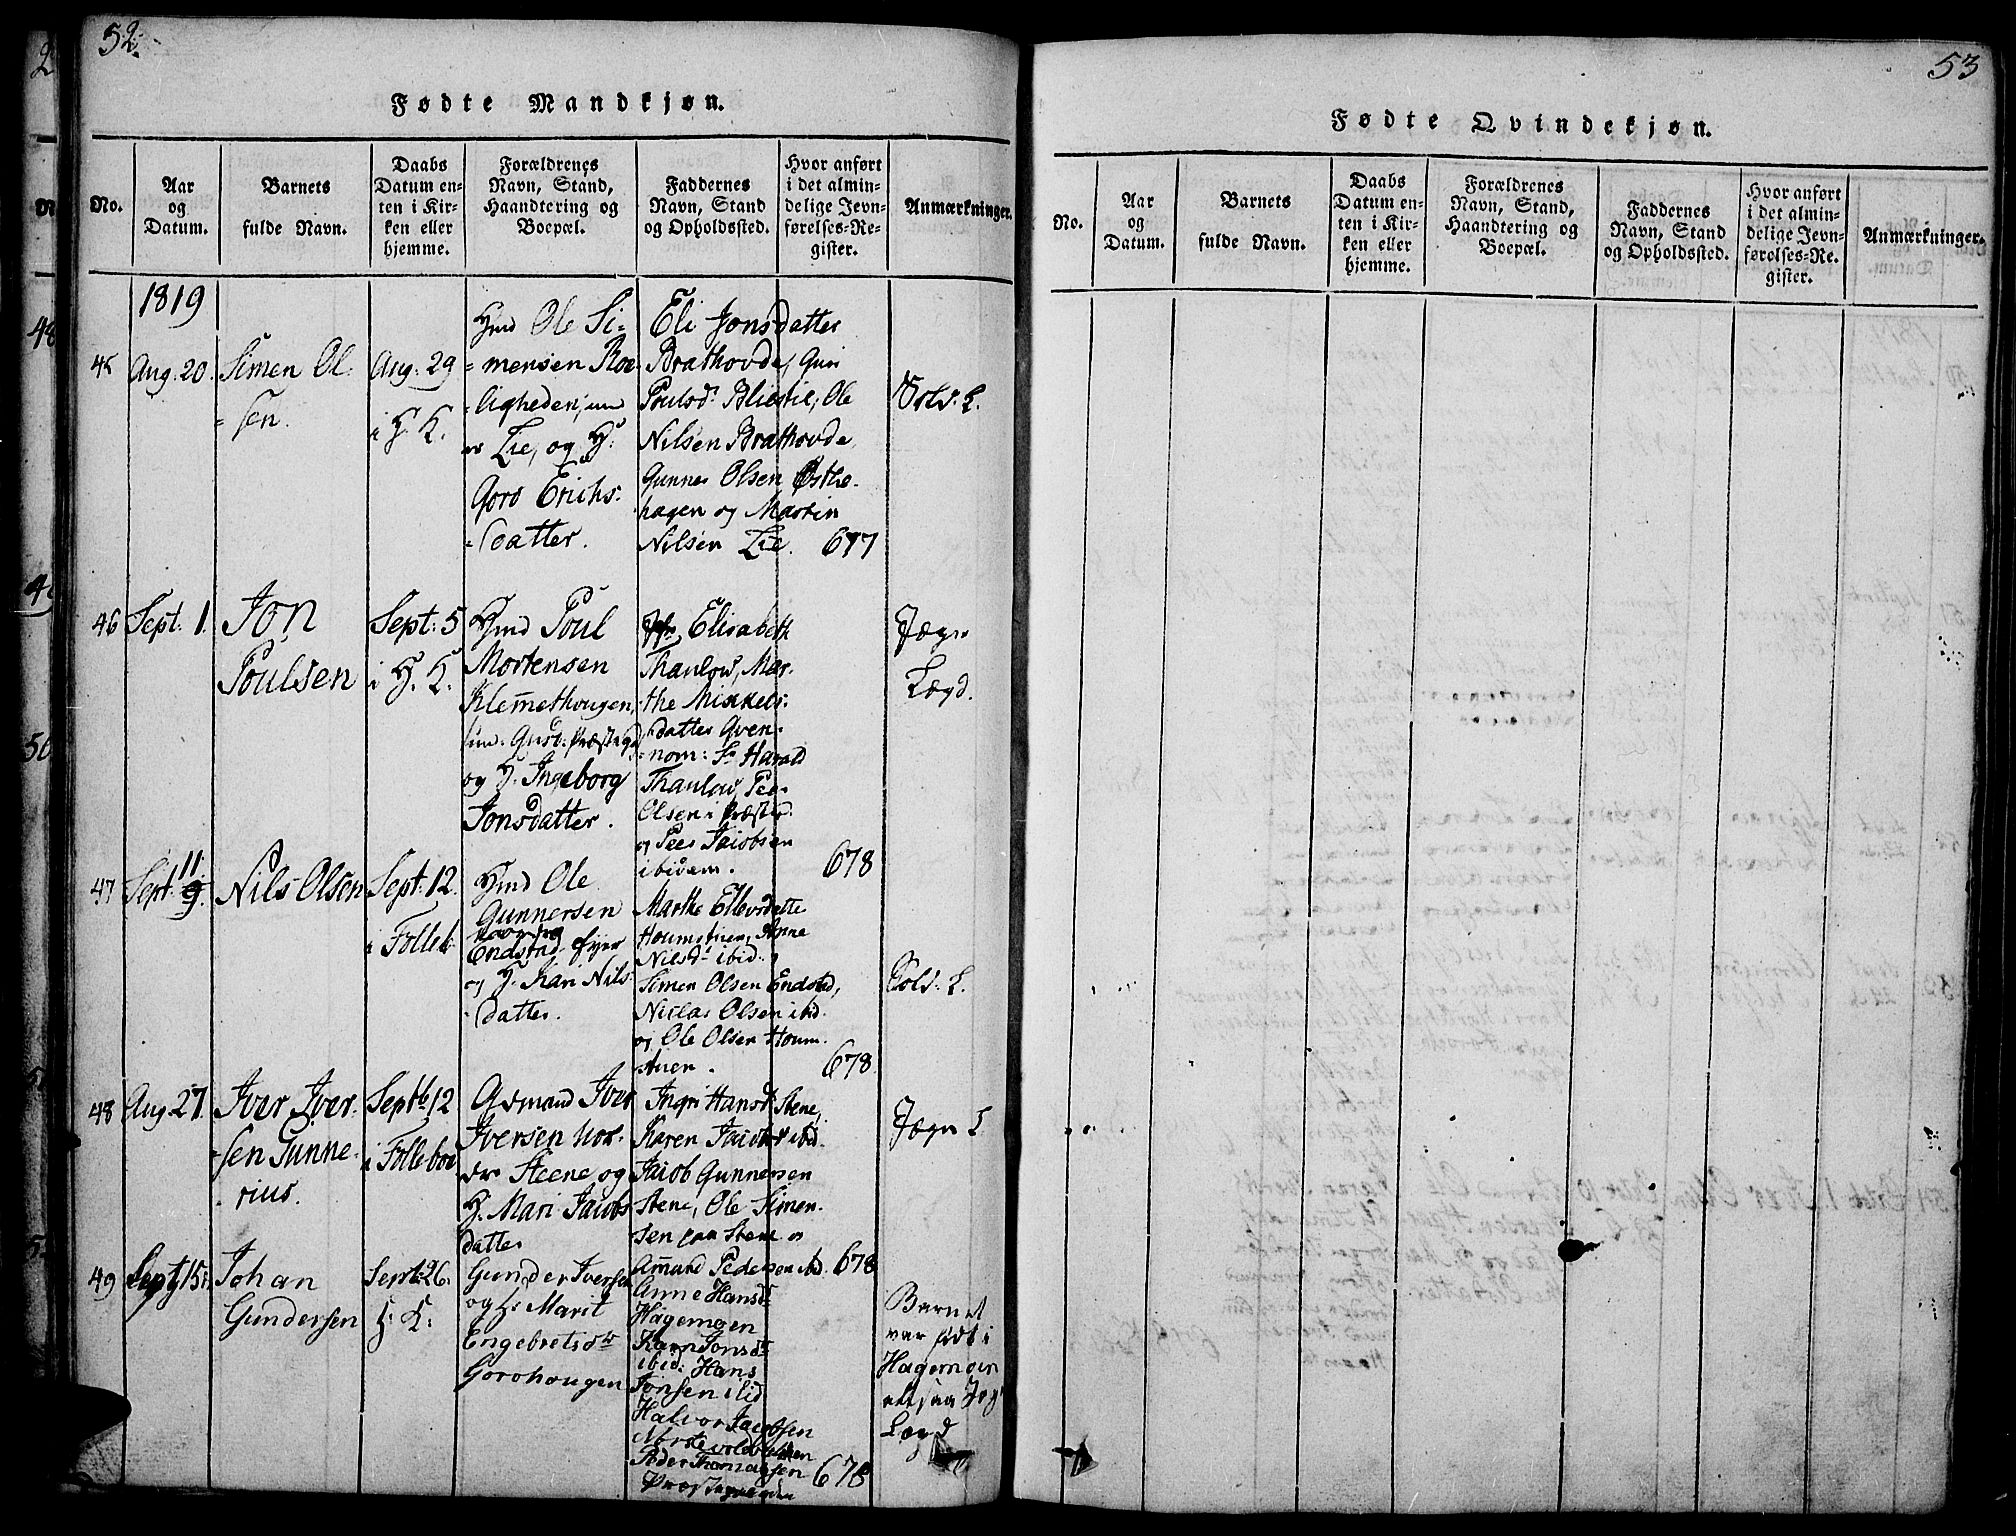 52.
Fødte Mandkjøn.
No.
Aar
og
Datum.
Barnets
fulde Navn.
Daabs
Datum en-
ten i Kir-
ken eller
hjemme.
Forældrenes
Navn, Stand,
Haandtering og
Boepæl.
Faddernes
Navn, Stand
og Opholdssted.
Hvor anført
i det almin-
delige Jevn-
førelses-Re-
gister.
Anmærkninger.
1819
45
Aug. 20.
Simen Ol-
sen.
Aug: 29
i H. K.
Hmd Ole Si=
=mensen Roe-
ligheden, un
er Lie, og H.
Goro Erichs-
=datter.
Eli Jonsdatter
Brathovde, Guri
Poulsd. Bliestie, Ole
Nilsen Brathovde
Gunner Olsen Østhe-
hagen og Martin
Nilsen Lie.
677
Sold: L.
46
Sept: 1.
Jon
Poulsen
Sept: 5
i H. K.
Hmd Poul
Mortensen
Klemethougen,
un. Gusd. Præstegd
og H. Ingeborg
Jonsdatter.
Jfr. Elisabeth
Thaulow, Mar-
the Mikkels-
datter Qven-
nom: Sr Harald
Thaulow, Pee
Olsen i Præsteg.
og Peer Jacobsen
ibidem.
678
Jægr
Lægd.
47
Sept. 11.
9.
Nils Olsen
Sept. 12.
i Følleb.
Hmd Ole
Gunnersen
Endstad
og H. Kari Nils-
datter.
Marthe Ellevsdatter
Houmstuen, Anne
Nilsd. ibid.,
Simen Olsen Endstad,
Niclas Olsen ibid.
og Ole Olsen Houm-
stuen.
678
Sold: L.
48
Aug 27.
Iver Iver-
sen Gunne-
rius.
Septb 12
i Følleboe
Gdmand Iver
Iversen Nor-
dre Steene og
H. Mari Jacobs
datter
Ingri Hansd. Stene,
Karen Jacobsd. ibid.
Jacob Gunnersen
Stene, Ole Simen-
sen paa Stene og
Amund Pedersen ibd.
678
Jægr L
49
Sept 15.
Johan
Gundersen
Sept: 26.
H. K.
Gunder Iversen
og H. Marit
Engebretsdtr
Gorohougen
Anne Hansd.
Hagemoen
Karn Jonsd.
ibid. Hans
Jonsen ibid
Halvor Jacobsen
Peder Thomassen
678
Barnet
var født i
Hagemoen
altsaa Jæg
Lægd
53
Fødte Qvindekjøn.
No.
Aar
og
Datum.
Barnets
fulde Navn.
Daabs
Datum en-
ten i Kir-
ken eller
hjemme.
Forældrenes
Navn, Stand,
Haandtering og
Boepæl.
Faddernes
Navn, Stand
og Opholdssted.
Hvor anført
i det almin-
delige Jevn-
førelses-Re-
gister.
Anmærkninger.